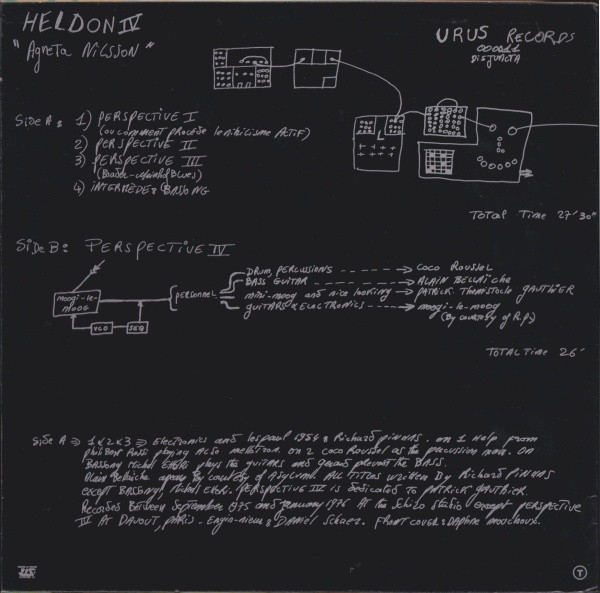 HELDON IV
"Agneta Nilsson"
URUS RECORDS
000011
DISJUNCTA
Side A: 1) PERSPECTIVE I
(ou comment procède le nihilisme actif)
2) PERSPECTIVE II
3) PERSPECTIVE III
(Baader-Meinhof Blues)
4) INTERMEDE: BASSONG
Total Time 27'30"
Side B: PERSPECTIVE IV
moogi-le-moog
VCO
SEQ
personnel
DRUM, PERCUSSIONS ----> COCO ROUSSEL
BASS GUITAR ----> ALAIN BELLAICHE
mini-moog and nice looking --> PATRICK Themistocle GAUTHIER
GUITARS & ELECTRONICS ----> moogi-le-moog
(By courtesy of R.P.)
TOTAL Time 26'
Side A => 1 & 2 & 3 => Electronics and lespaul 1954 : Richard PINHAS. on 1 Help from
Philibert Rossi playing also mellotron. on 2 Coco Roussel as the percussion man. On
Bassong Michel Ettori plays the guitars and Gerard Prevost the BASS.
Alain Bellaiche appear by courtesy of Asylum. ALL Titles written By Richard PINHAS
except BASSONG, Michel Ettori. PERSPECTIVE IV is dedicated to PATRICK GAUTHIER.
Recorded Between September 1975 and January 1976 At the Schizo studio except PERSPECTIVE
IV AT DAVOUT, PARIS.
FRONT COVER : DAPHNE mouchoux.
T